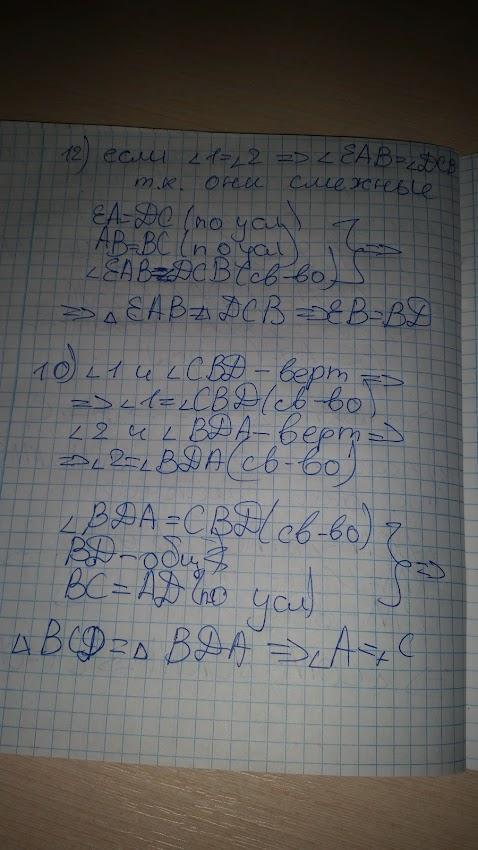 12) если ∠1=∠2 => ∠EAB=∠DCB
т.к. они смежные
EA=DC (по усл)
AB=BC (по усл)
∠EAB=∠DCB (св-во)
=>
=> △EAB=△DCB => EB=BD
10) ∠1 и ∠CBD - верт =>
=> ∠1=∠CBD (св-во)
∠2 и ∠BDA - верт =>
=> ∠2=∠BDA (св-во)
∠BDA=CBD (св-во)
BD - общ
BC=AD (по усл)
=>
△BCD=△BDA => ∠A=∠C